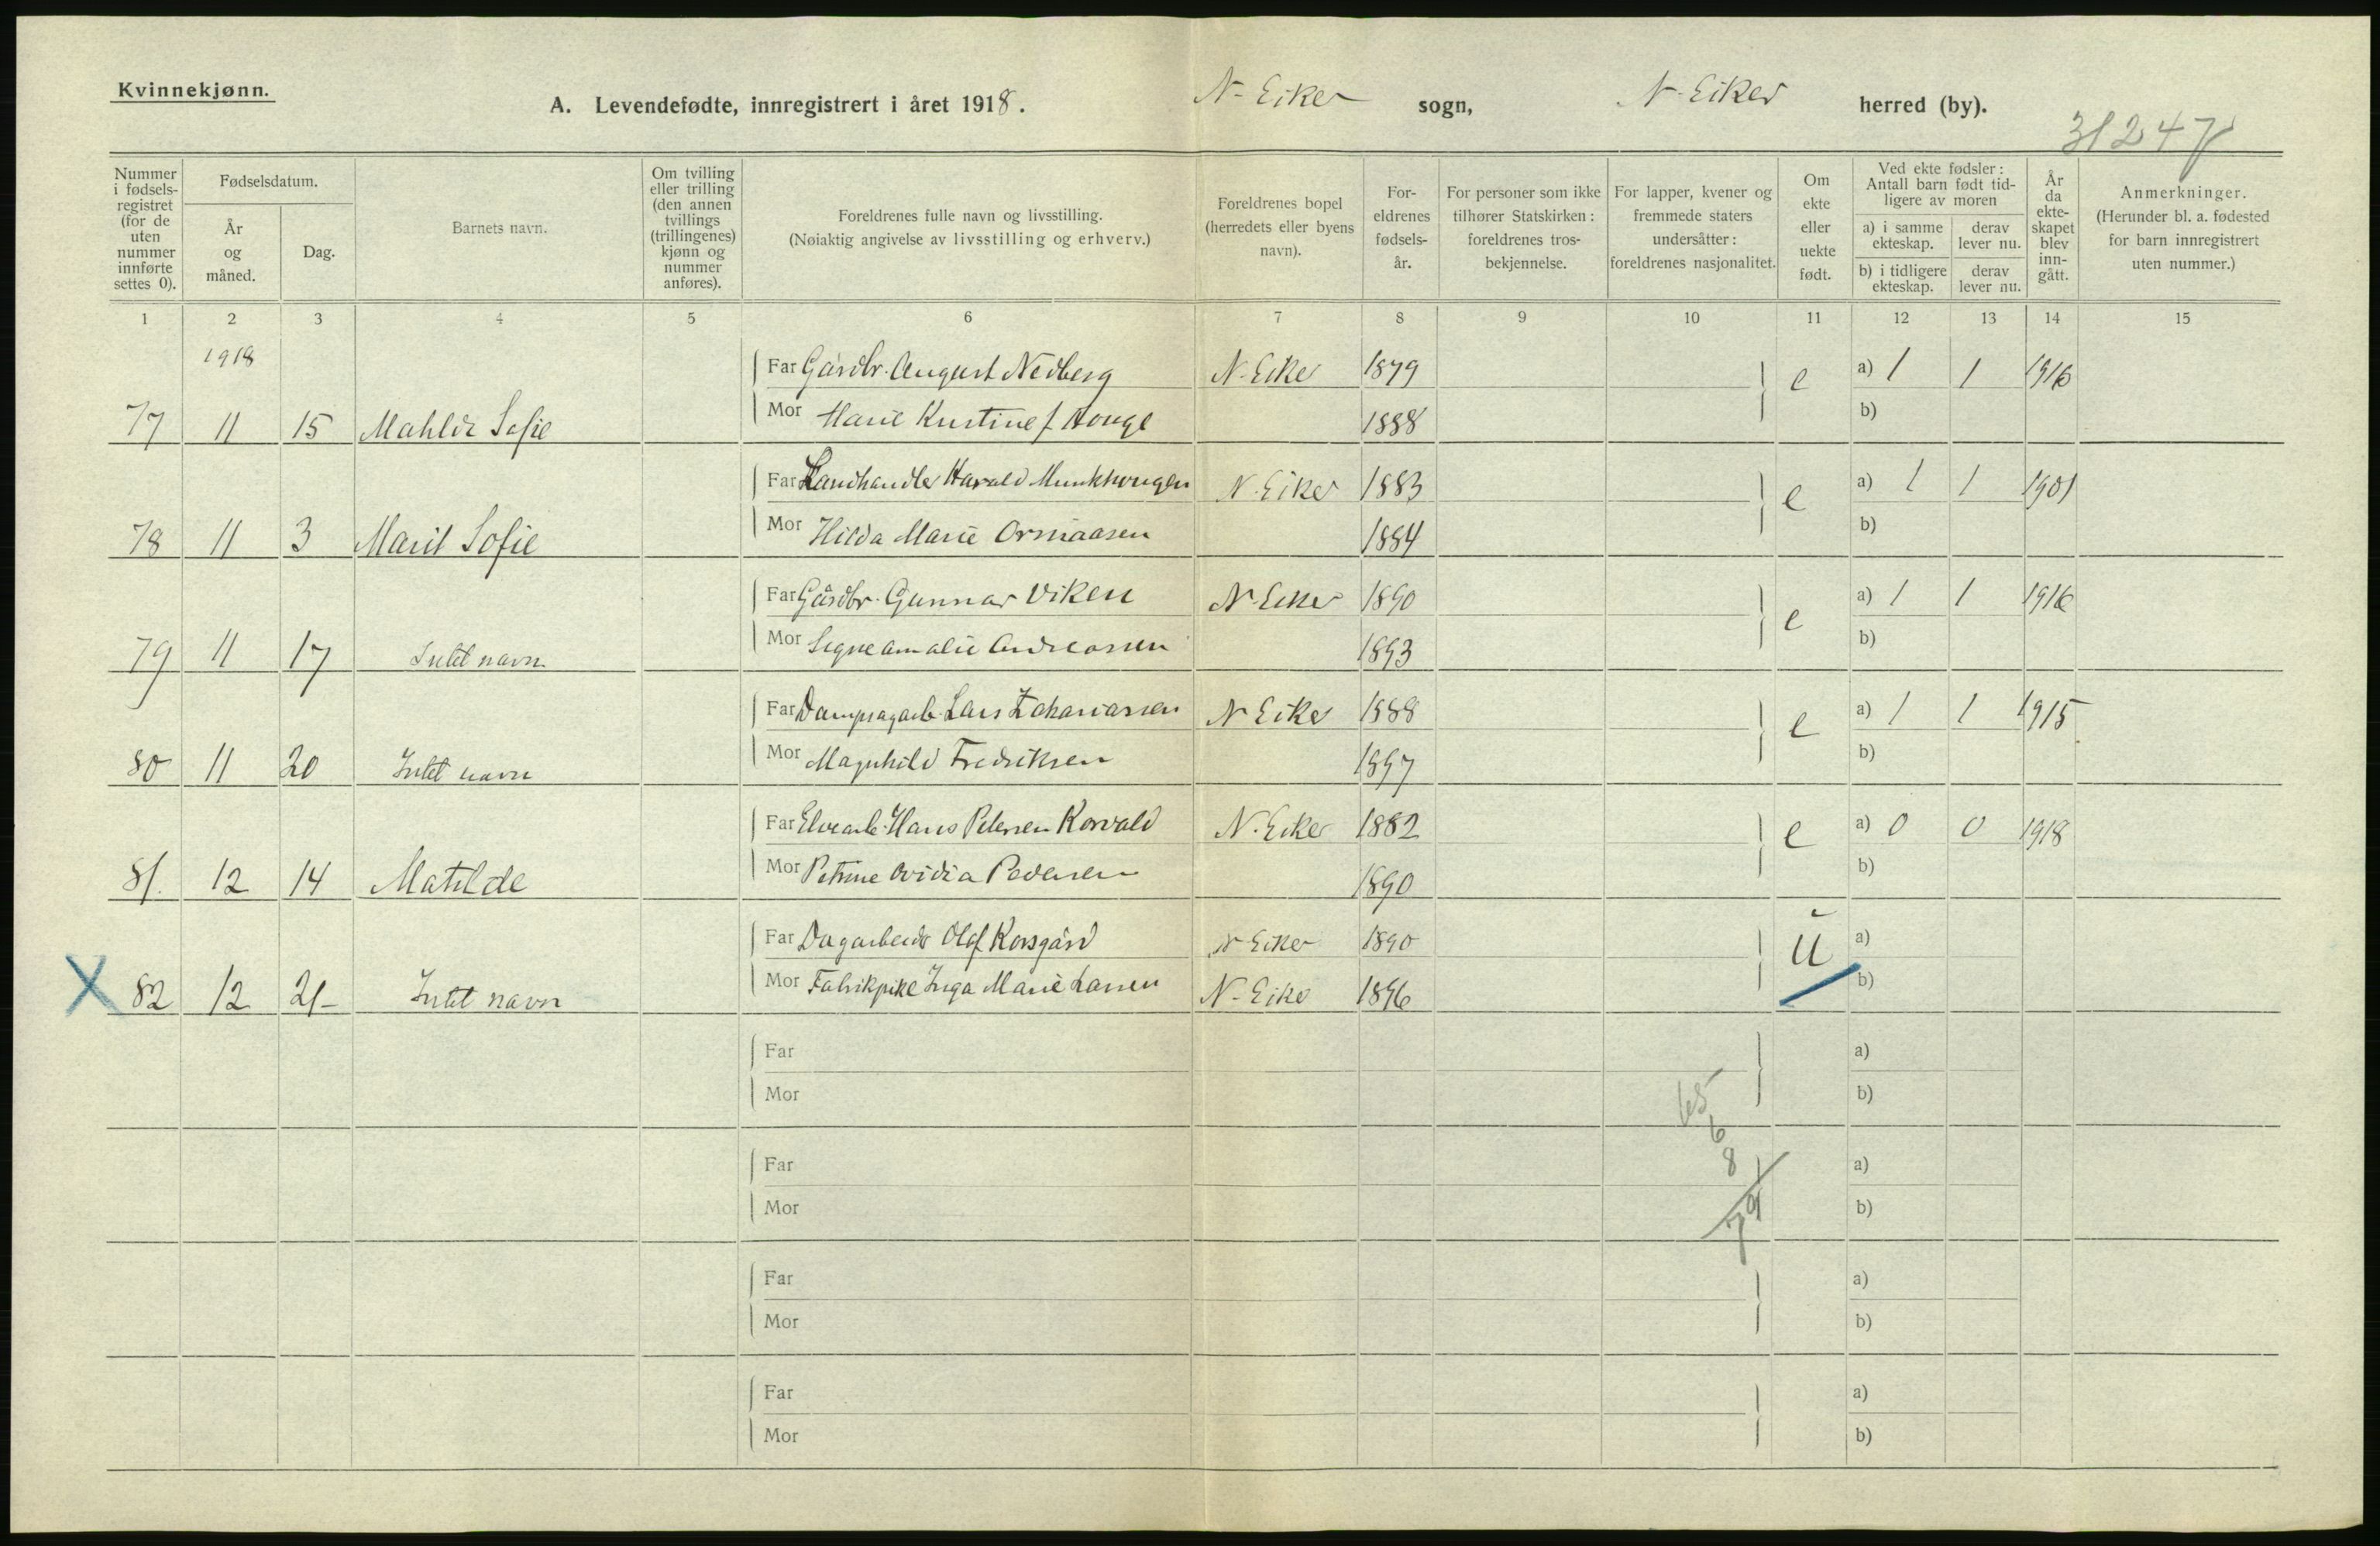 Kvinnekjønn.
A. Levendefødte, innregistrert i året 1918. N-Eiker sogn, N-Eiker herred (by).
31247
Nummer i fødselsregistret (for de uten nummer innførte settes 0).
Fødselsdatum.
År og måned.
Dag.
Barnets navn.
Om tvilling eller trilling (den annen tvillings (trillingenes) kjønn og nummer anføres).
Foreldrenes fulle navn og livsstilling.
(Nøiaktig angivelse av livsstilling og erhverv.)
Foreldrenes bopel (herredets eller byens navn).
Foreldrenes fødselsår.
For personer som ikke tilhører Statskirken: foreldrenes trosbekjennelse.
For lapper, kvener og fremmede staters undersåtter: foreldrenes nasjonalitet.
Om ekte eller uekte født.
Ved ekte fødsler: Antall barn født tidligere av moren
a) i samme ekteskap.
derav lever nu.
b) i tidligere ekteskap.
derav lever nu.
År da ekteskapet blev inngått.
Anmerkninger.
(Herunder bl. a. fødested for barn innregistrert uten nummer.)
1 2 3 4 5 6 7 8 9 10 11 12 13 14 15
1918
Far Gårdbr. August Nedberg N-Eiker 1879 e a) 1 1 1916
77 11 15 Mahlde Sofie Mor Marie Kristine f. Houge 1888 b)
Far Landhandler Harald Munkhaugen N-Eiker 1883 e a) 1 1 1901
78 11 3 Marit Sofie Mor Hilda Marie Ormaasen 1884 b)
Far Gårdbr. Gunnar Viken N-Eiker 1890 e a) 1 1 1916
79 11 17 Intet navn Mor Signe Amalie Andreassen 1893 b)
Far Dampsagarb. Lars Zakariassen N Eiker 1888 e a) 1 1 1915
80 11 20 Intet navn Mor Magnhild Fredriksen 1897 b)
Far Elvearb. Hans Petersen Korvald N-Eiker 1882 e a) 0 0 1918
81. 12 14 Matilde Mor Petrine Ovidia Pedersen 1890 b)
Far Dagarbeider Olaf Korsgård N-Eiker 1890 u a)
X 82 12 21- Intet navn Mor Fabrikpike Inga Marie Larsen N-Eiker 1896 b)
Far a)
Mor b)
65
6
Far 8 a)
Mor 79 b)
Far a)
Mor b)
Far a)
Mor b)